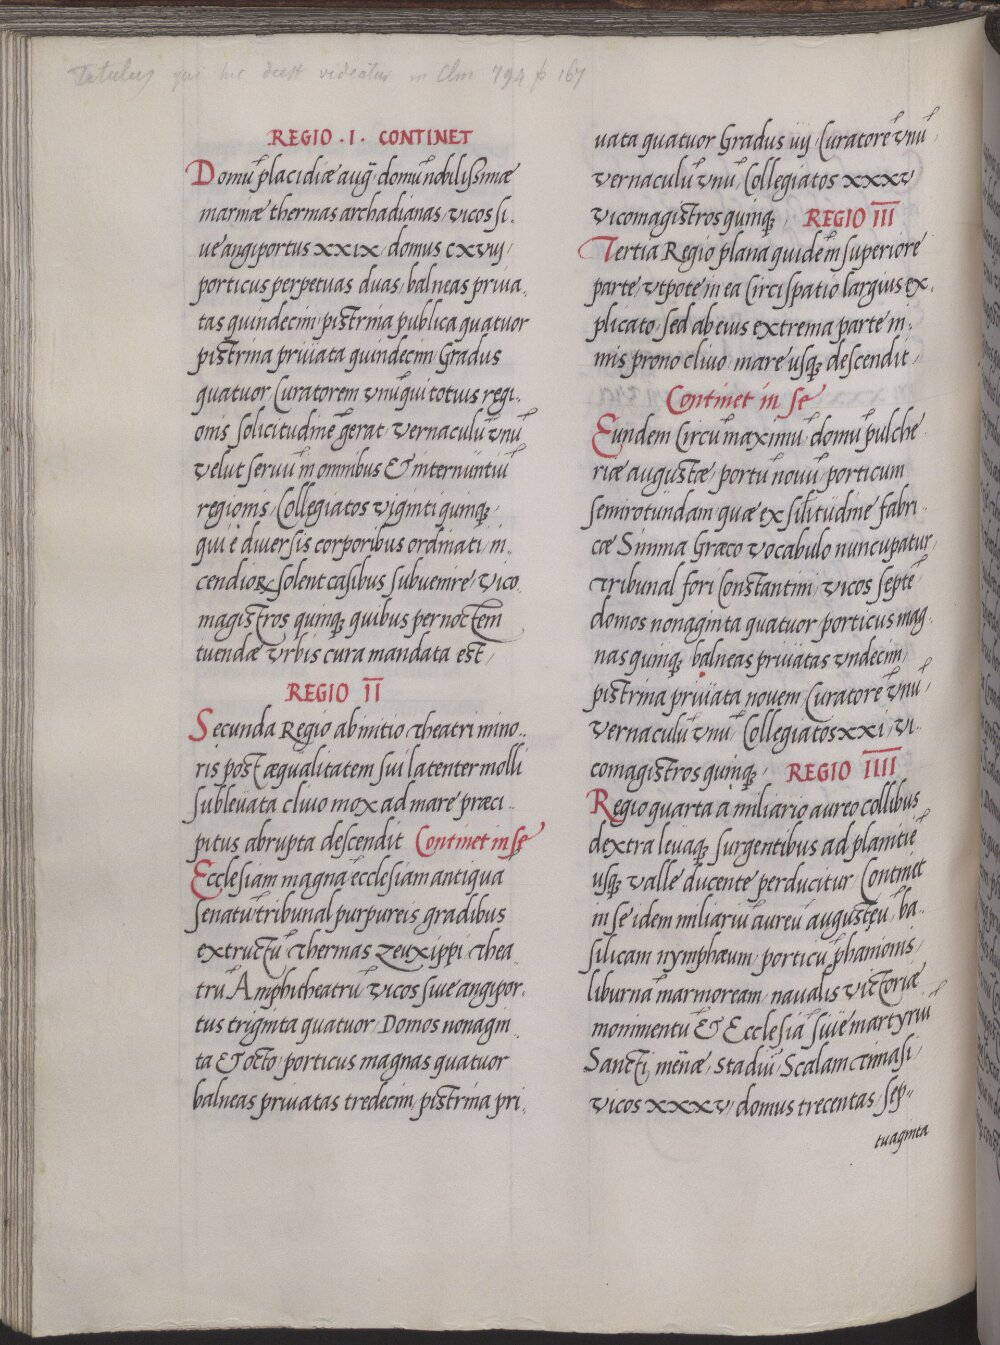 Titulus qui hic deest videatur in Clm 794 p 167
REGIO · I · CONTINET
Domū placidiæ aug̃ domū nobilissimæ
marinæ thermas archadianas, vicos si-
ue angiportus xxix, domus cxvij,
porticus perpetuas duas, balneas priua-
tas quindecim, pistrina publica quatuor
pistrina priuata quindecim, Gradus
quatuor Curatorem vnū qui totius regi-
onis solicitudinē gerat, vernaculū vnū
velut seruū in omnibus & internuntiū
regionis, Collegiatos viginti quinq;
qui è diuersis corporibus ordinati, in-
cendioꝝ solent casibus subuenire, vico-
magistros quinq; quibus per noctem
tuendæ vrbis cura mandata est,
REGIO II
Secunda Regio ab initio theatri mino-
ris post æqualitatem sui latenter molli
subleuata cliuo mox ad mare præci-
pitus abrupta descendit Continet in se
Ecclesiam magnā ecclesiam antiqua
senatū tribunal purpureis gradibus
extructū thermas zeuxippi thea
trū Amphitheatrū vicos siue angipor-
tus triginta quatuor, Domos nonagin-
ta & octo, porticus magnas quatuor
balneas priuatas tredecim, pistrina pri-
uata quatuor Gradus iiij, Curatorē vnū,
vernaculū vnū, Collegiatos xxxv
vicomagistros quinq;, REGIO III
Tertia Regio plana quidē in superiore
parte, vtpote in ea Circi spatio largius ex-
plicato, sed ab eius extrema parte ni-
mis prono cliuo, mare usq; descendit,
Continet in se
Eundem Circū maximū, domū pulche
riæ augustæ, portū nouū, porticum
semirotundam quæ ex silitudine fabri-
cæ Simma Græco vocabulo nuncupatur,
tribunal fori Constantini, vicos septē
domos nonaginta quatuor porticus mag-
nas quinq; balneas priuatas vndecim,
pistrina priuata nouem Curatorē vnū,
vernaculū vnū, Collegiatos xxi, vi-
comagistros quinq;, REGIO IIII
Regio quarta à miliario aureo collibus
dextra leuaq; surgentibus ad planitiē
usq; valle ducente perducitur, Continet
in se idem miliariū aureū augusteū, ba-
silicam nymphæum, porticū phanionis,
liburnā marmoream, naualis victoriæ
monimentū & Ecclesiā siue martyriū
Sancti menæ, stadiū, Scalam timasi,
vicos xxxv, domus trecentas, sep-
tuaginta